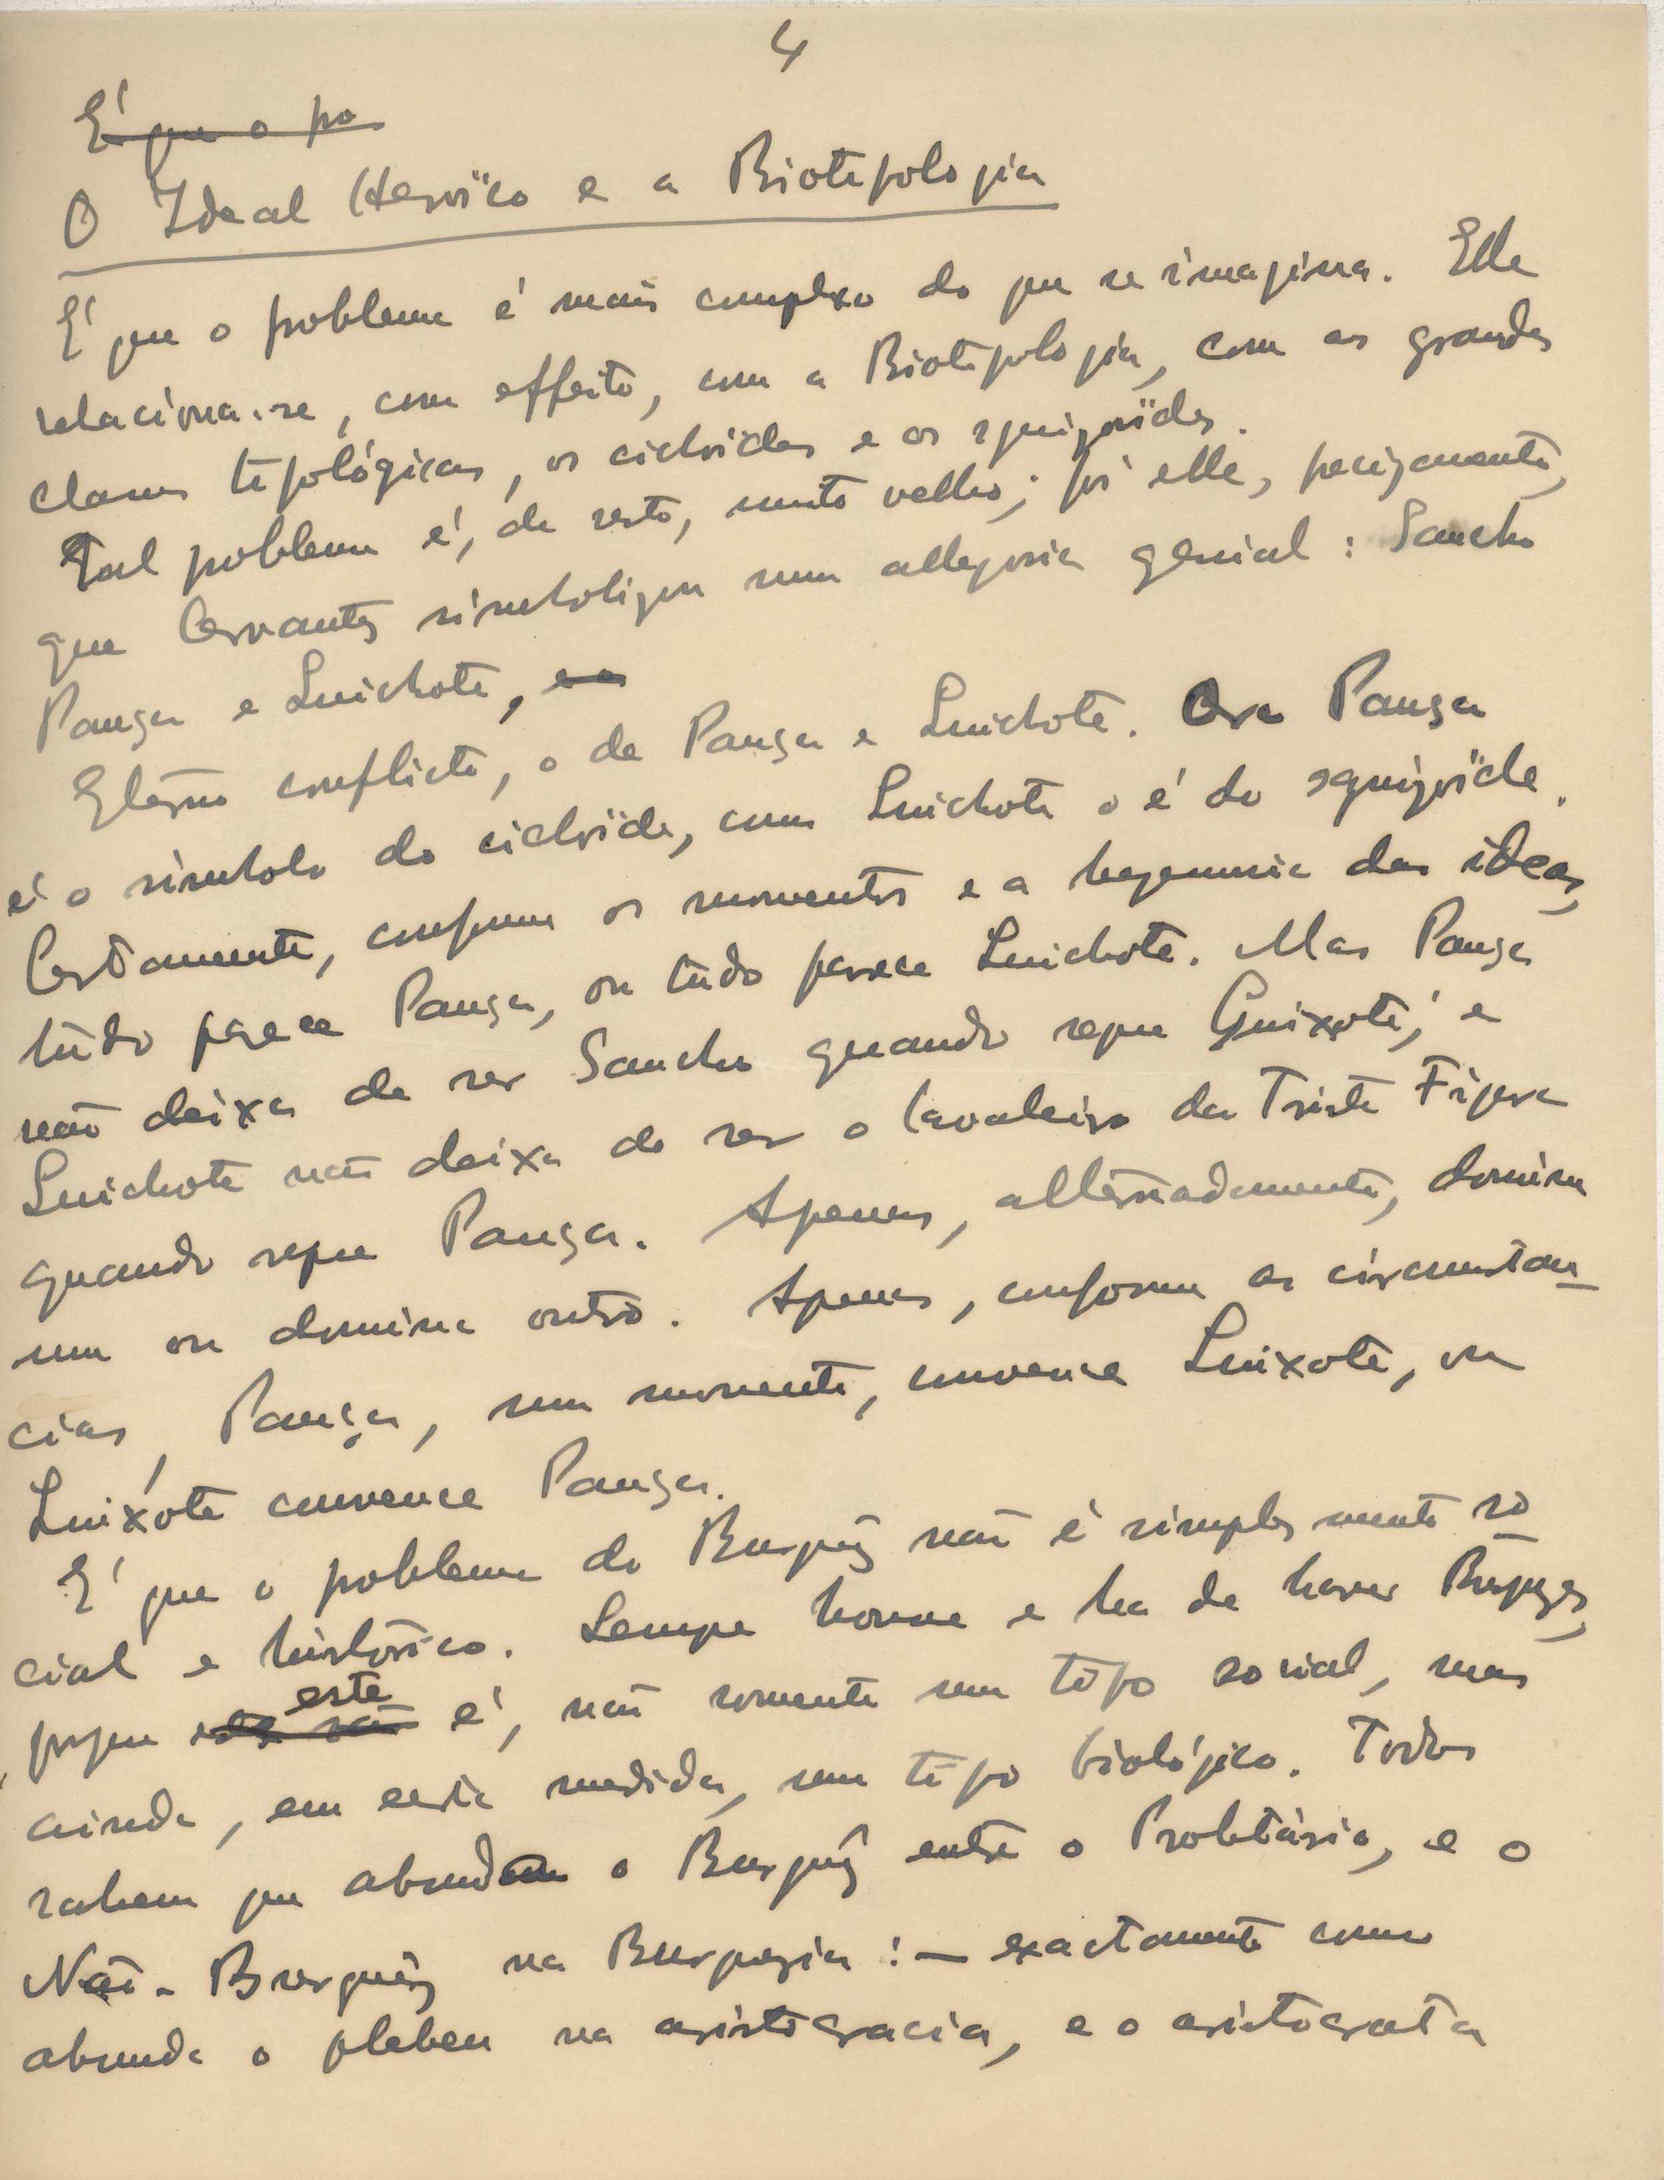 4
É que o pro
O Ideal Heroïco e a Biotipologia
É que o problema é mais complexo do que se imagina. Elle
relaciona-se, com effeito, com a Biotipologia, com as grandes
classes tipológicas, os cicloïdes e os squizoïdes.
Tal problema é, de resto, muito velho; foi elle, precizamente,
que Cervantes simbolizou numa allegoria genial: Sancho
Pança e Quichote,
Eterno conflicto, o de Pança e Quichote. Ora Pança
é o simbolo do cicloïde, como Quichote o é do squizoïde.
Certamente, conforme os momentos e a hegemonia das ideas,
tudo parece Pança, ou tudo parece Quichote. Mas Pança
não deixa de ser Sancho quando segue Quixote; e
Quichote não deixa de ser o Cavaleiro da Triste Figura
quando segue Pança. Apenas, alternadamente, domina
um ou domina outro. Apenas, conforme as circunstan-
cias, Pança, num momento, convence Quixote, ou
Quixote convence Pança.
É que o problema do Burguês não é simplesmente so-
cial e historico. Sempre houve e ha de haver Burgueses,
porque este é, não somente um tipo social, mas
ainda, em certa medida, um tipo biológico. Todos
sabem que abunda o Burguês entre o Proletário, e o
Não-Burguês na Burguesia: — exactamente como
abunda o plebeu na aristocracia, e o aristocrata